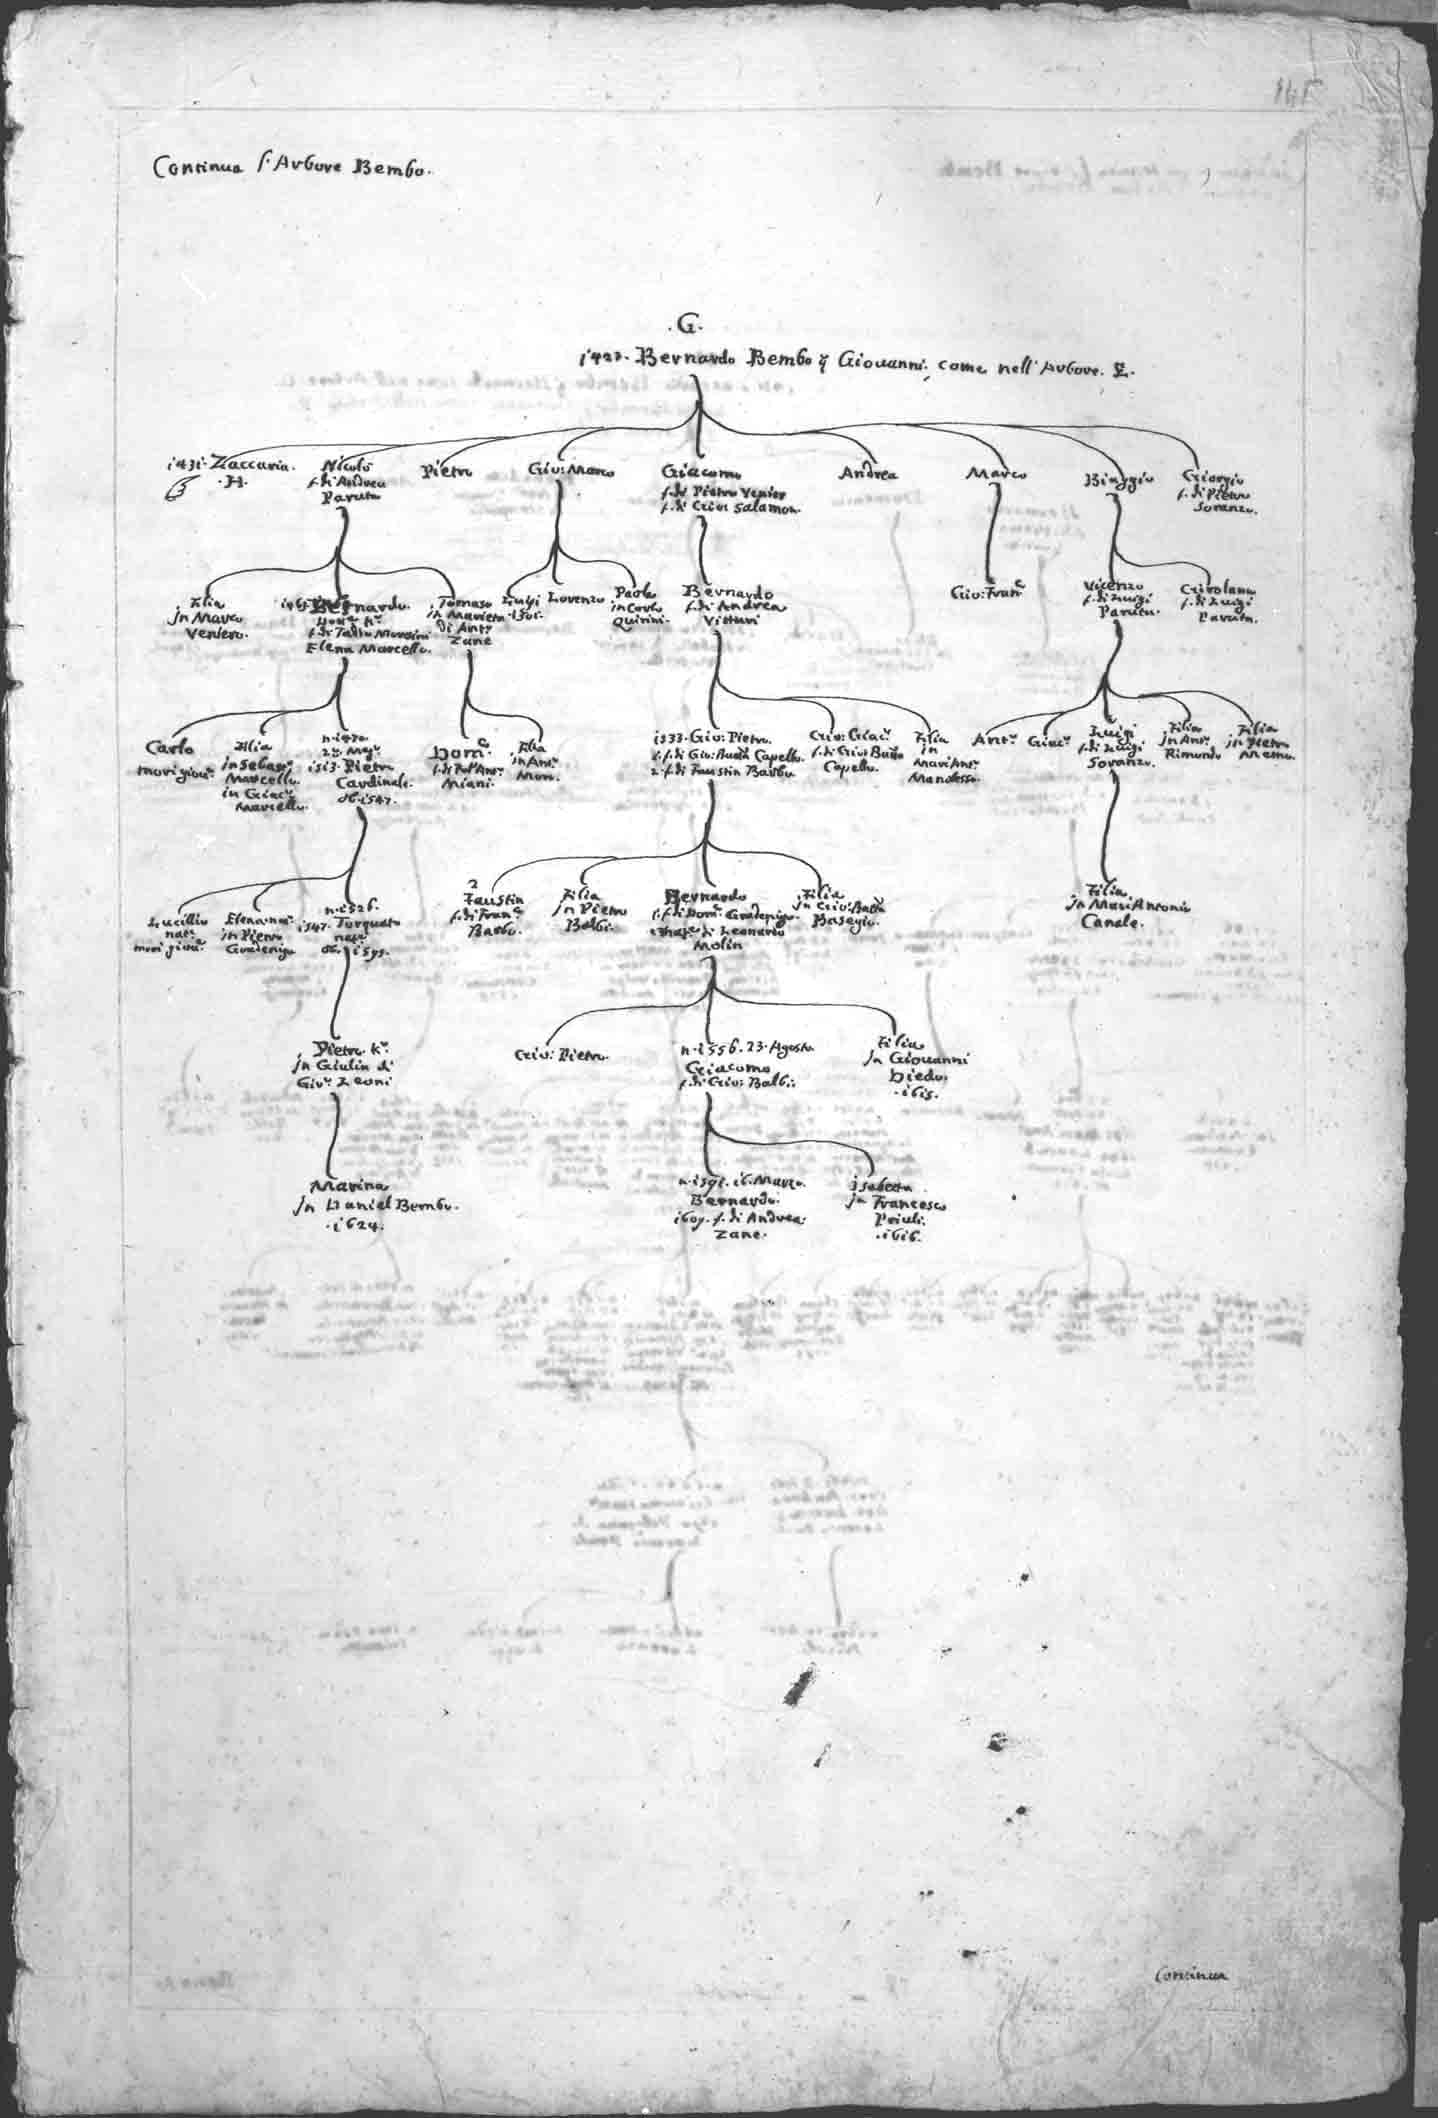 145
Continua l'Arbore Bembo.
.G.
1427. Bernardo Bembo q Giovanni, come nell'Arbore. E.
1431. Zaccaria.
.H.
Nicolò
f. di Andrea
Paruta
Pietro
Gio: Marco
Giacomo
f. di Pietro Venier
f. di Gio: Salamon.
Andrea
Marco
Biaggio
Giorgio
f. di Pietro
Soranzo.
Filia
jn Marco
Veniero.
Bernardo.
f. di
Elena Marcello.
Tomaso
in Marieta
di Antº
Zane
Luigi
1501.
Lorenzo
Paola
in Carlo
Quirini.
Bernardo
f. di Andrea
Vitturi
Gio: Franº
Vicenzo
f. di Luigi
Paruta.
Girolamo
f. di Luigi
Paruta.
Carlo
mori giovᵉ
Filia
in Sebastº
Marcello.
in Giacº
Marcello.
n. 1470
1513. Pietro
Cardinale.
ob. 1547.
Domº
Miani.
Filia
in Antº
Moro.
1533. Gio: Pietro.
1. f. di Gio: Battᵃ Capello.
2. f. di Faustin Barbo.
Gio: Giacº
f. di Gio: Battᵃ
Capello.
Filia
in
Mari Antº
Manolesso.
Antº
Giacº
Luigi
f. di Luigi
Soranzo.
Filia
jn Antº
Rimondo
Filia
jn Pietro
Memo.
Lucillio
natᵉ
mori giovᵉ
Elena natᵉ
jn Pietro
Gradenigo
n. 1526.
1547. Torquato
natᵉ
ob. 1595.
2
Faustin
f. di Franº
Barbo.
Filia
jn Pietro
Balbi.
Bernardo
1. f. di Domº Gradenigo.
di Leonardo
Molin
Filia
jn Gio: Battᵃ
Basegio.
Filia
jn Mari Antonio
Canale.
Pietro Kʳ.
jn Giulia di
Giov. Leoni
Gio: Pietro.
n. 1556. 23. Agosto
Giacomo
f. di Gio: Balbi.
Filia
jn Giovanni
Diedo.
.1615.
Marina
jn Daniel Bembo.
.1624.
n. 1591. 16. Marzo.
Bernardo.
1609. f. di Andrea
Zane.
Isabetta
jn Francesco
Priuli.
.1616.
Continua